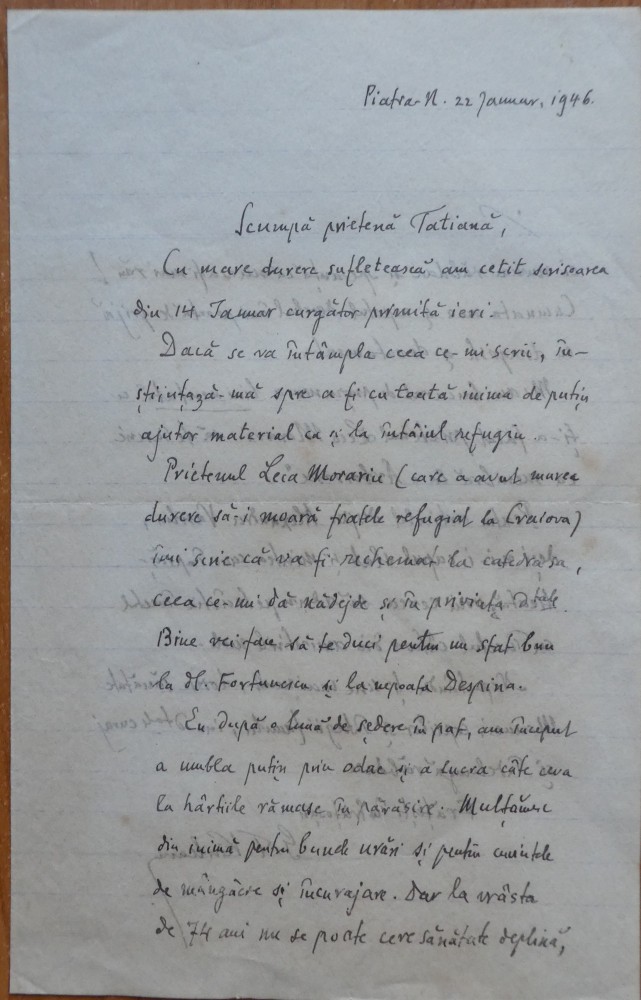 Piatra-N. 22 Januar, 1946.
Scumpă prietenă Tatiană,
Cu mare durere sufletească am cetit scrisoarea
din 14 Januar curgător primită ieri.
Dacă se va întâmpla ceea ce-mi scrii, în-
științază-mă spre a fi cu toată inima de puțin
ajutor material ca și la întâiul refugiu.
Prietenul Leca Morariu (care a avut marea
durere să-i moară fratele refugiat la Craiova)
îmi scrie că va fi rechemat la catedra sa,
ceea ce-mi dă nădejde și în privința Dtale.
Bine vei face să te duci pentru un sfat bun
la dl. Fortunescu și la nepoata Despina.
Eu după o lună de ședere în pat, am început
a umbla puțin prin odae și a lucra câte ceva
la hârtiile rămase în părăsire. Mulțămesc
din inimă pentru bunele urări și pentru cuvintele
de mângâere și încurajare. Dar la vrâsta
de 74 ani nu se poate cere sănătate deplină,